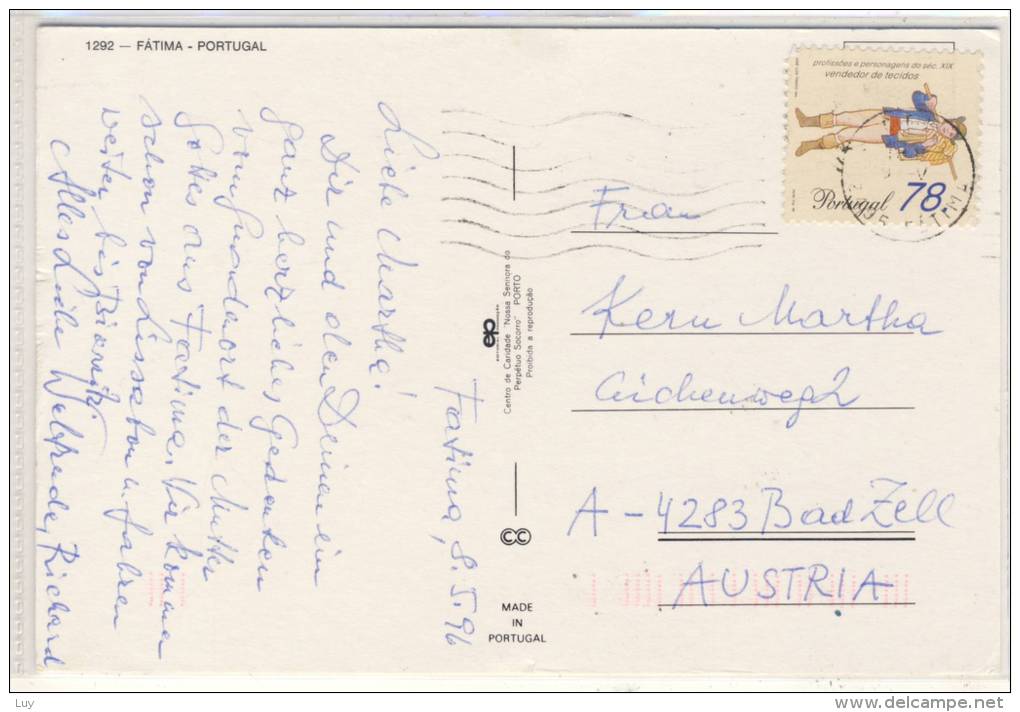 1292 — FÁTIMA - PORTUGAL
Fatima, 8.5.96
Liebe Martha!
Dir und den Deinen ein
ganz herzliches Gedenken
vom Gnadenort der Mutter
Gottes aus Fatima. Wir kommen
schon von Lissabon u. fahren
weiter bis
Alles Liebe Welfriede, Richard
Centro de Caridade "Nossa Senhora do
Perpétuo Socorro" PORTO
Proibida a reprodução
CC
MADE
IN
PORTUGAL
profissões e personagens do séc. XIX
vendedor de tecidos
Portugal 78.
Frau
Kern Martha
Eichenweg 2
A - 4283 Bad Zell
AUSTRIA
Luy
www.delcampe.net